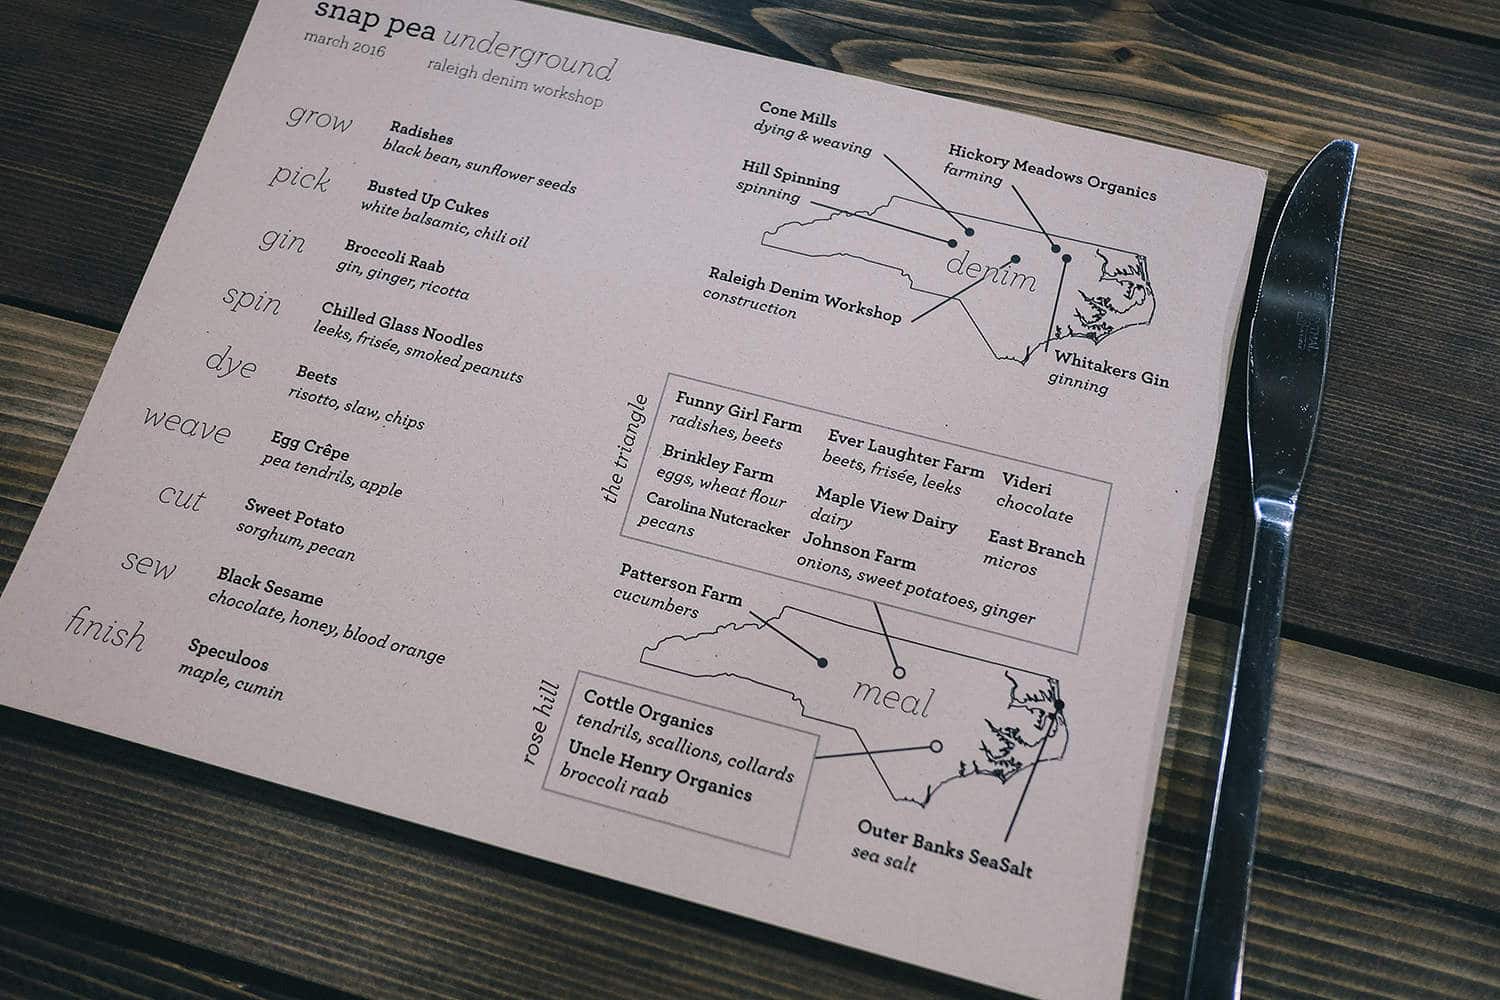 snap pea underground
march 2016
raleigh denim workshop
grow
Radishes
black bean, sunflower seeds
pick
Busted Up Cukes
white balsamic, chili oil
gin
Broccoli Raab
gin, ginger, ricotta
spin
Chilled Glass Noodles
leeks, frisée, smoked peanuts
dye
Beets
risotto, slaw, chips
weave
Egg Crêpe
pea tendrils, apple
cut
Sweet Potato
sorghum, pecan
sew
Black Sesame
chocolate, honey, blood orange
finish
Speculoos
maple, cumin
Cone Mills
dying & weaving
Hickory Meadows Organics
farming
Hill Spinning
spinning
denim
Raleigh Denim Workshop
construction
Whitakers Gin
ginning
the triangle
Funny Girl Farm
radishes, beets
Ever Laughter Farm
beets, frisée, leeks
Videri
chocolate
Brinkley Farm
eggs, wheat flour
Maple View Dairy
dairy
East Branch
micros
Carolina Nutcracker
pecans
Johnson Farm
onions, sweet potatoes, ginger
Patterson Farm
cucumbers
meal
rose hill
Cottle Organics
tendrils, scallions, collards
Uncle Henry Organics
broccoli raab
Outer Banks SeaSalt
sea salt